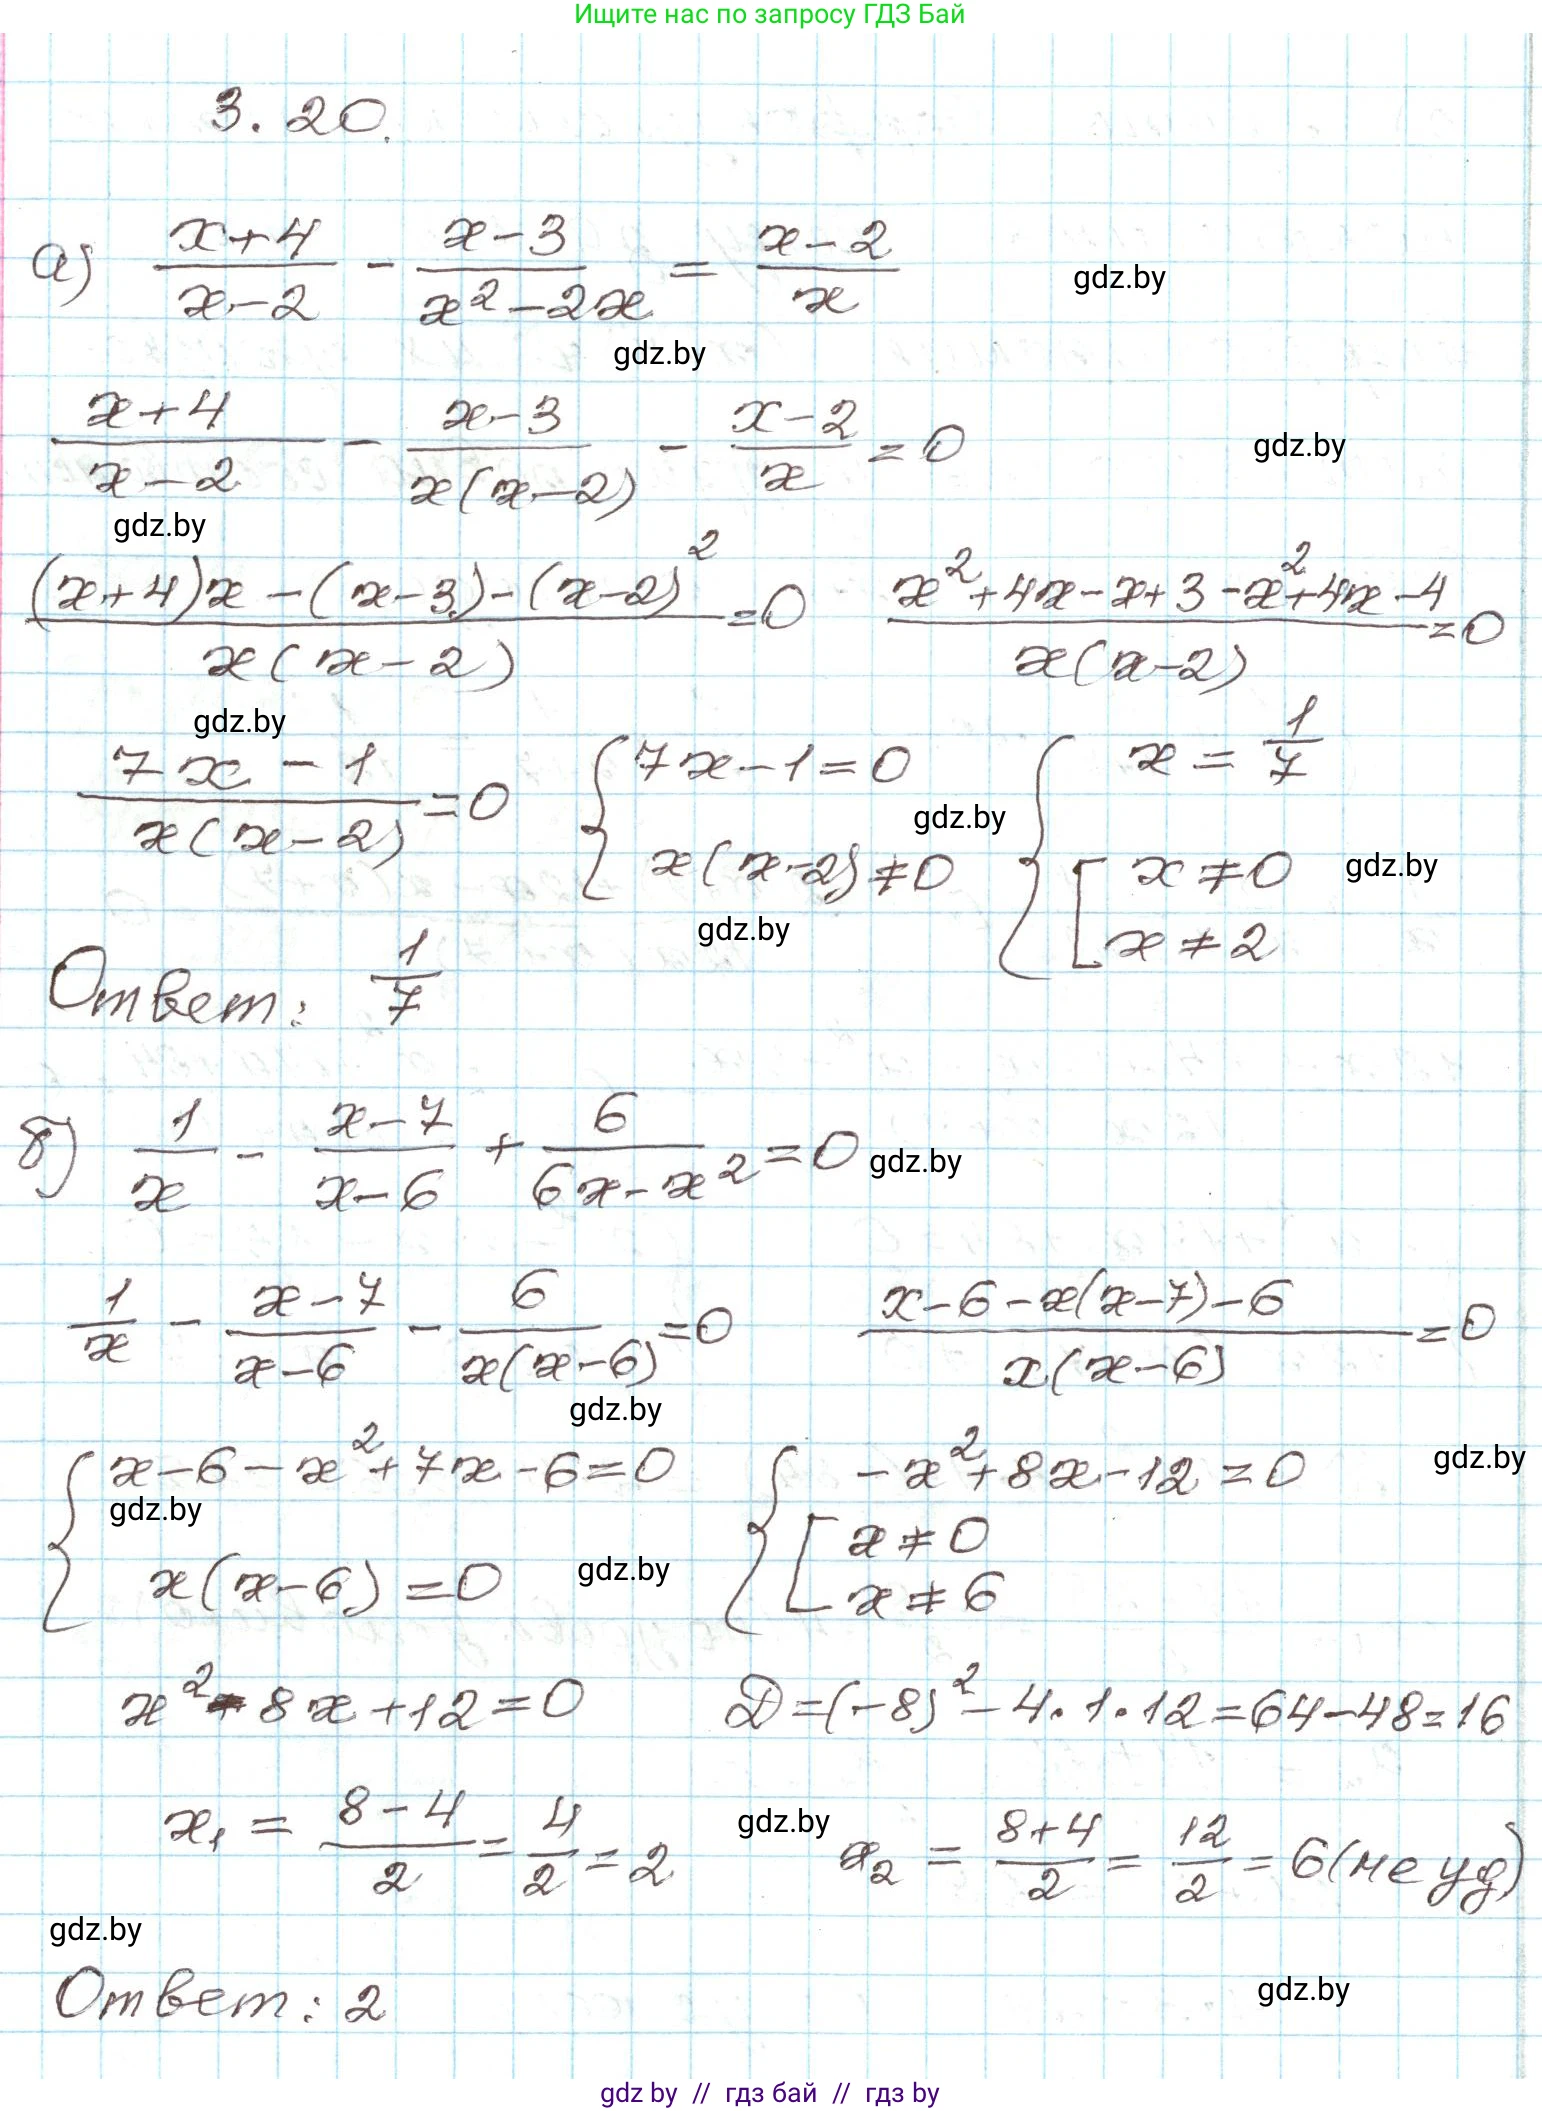 Ищите нас по запросу ГДЗ Бай
3.20.
а) (x+4)/(x-2) - (x-3)/(x²-2x) = (x-2)/x
gdz.by
gdz.by
(x+4)/(x-2) - (x-3)/(x(x-2)) - (x-2)/x = 0
gdz.by
gdz.by
((x+4)x-(x-3)-(x-2)²)/(x(x-2)) = 0 (x²+4x-x+3-x²+4x-4)/(x(x-2)) = 0
gdz.by
(7x-1)/(x(x-2)) = 0 { 7x-1=0 x(x-2)≠0 { x = 1/7 [ x≠0 x≠2
gdz.by
gdz.by
gdz.by
Ответ: 1/7
б) 1/x - (x-7)/(x-6) + 6/(6x-x²) = 0
gdz.by
1/x - (x-7)/(x-6) - 6/(x(x-6)) = 0 (x-6-x(x-7)-6)/(x(x-6)) = 0
gdz.by
{ x-6-x²+7x-6=0 x(x-6)=0 { -x²+8x-12=0 [ x≠0 x≠6
gdz.by
gdz.by
gdz.by
x²-8x+12=0 D=(-8)²-4·1·12=64-48=16
x₁ = (8-4)/2 = 4/2 = 2 gdz.by x₂ = (8+4)/2 = 12/2 = 6 (не уд)
gdz.by
Ответ: 2
gdz.by
gdz by // гдз бай // гдз by